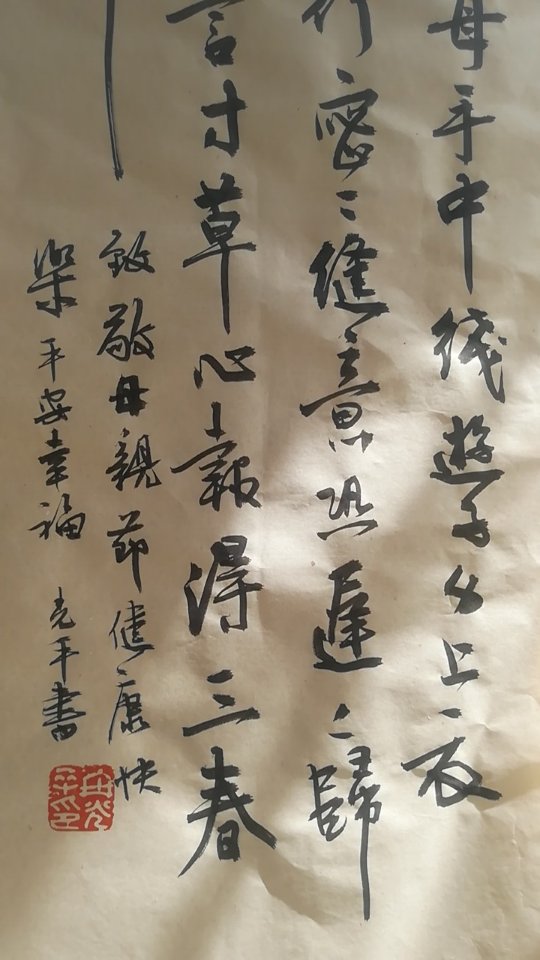 母手中线遊子身上衣
行密〻缝意恐遲〻歸
言寸草心報得三春
致敬母親節健康快
樂平安幸福 光平書